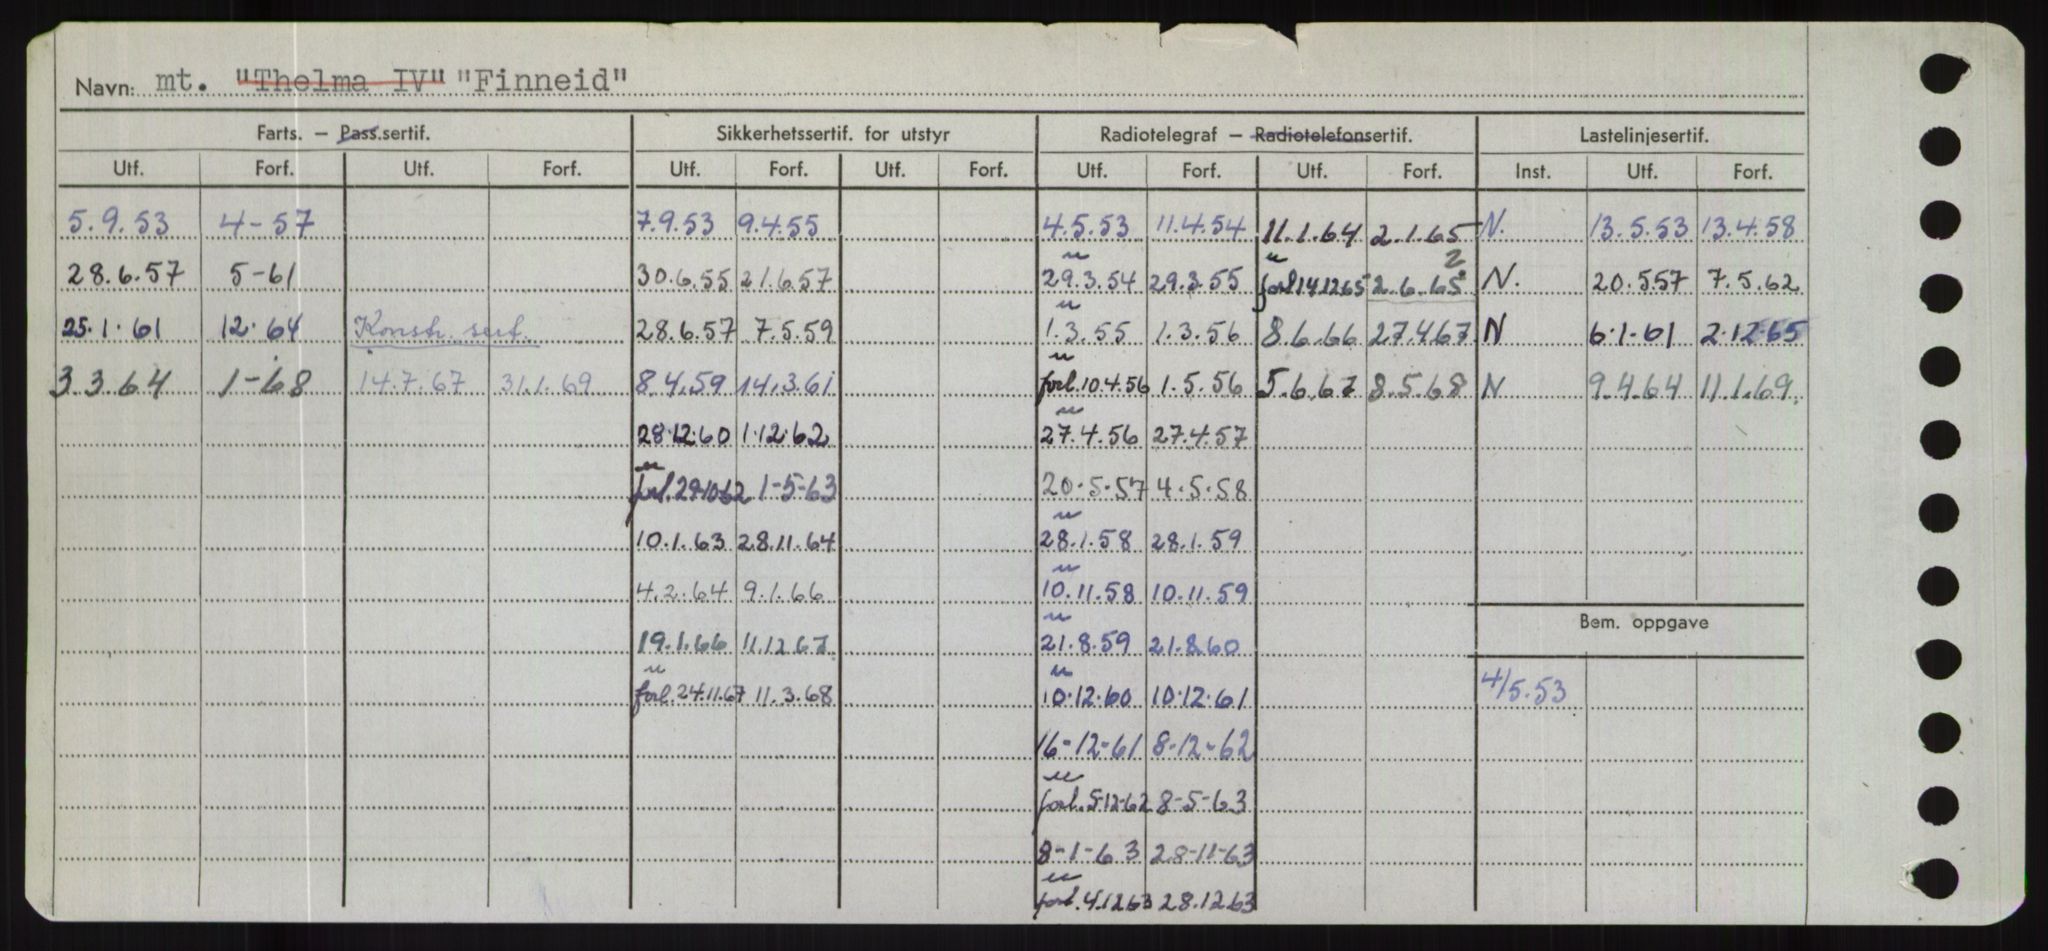 Navn: mt. "Thelma IV" "Finneid"
Farts. – Pass.sertif. Sikkerhetssertif. for utstyr Radiotelegraf – Radiotelefonsertif. Lastelinjesertif.
Utf. Forf. Utf. Forf. Utf. Forf. Utf. Forf. Utf. Forf. Utf. Forf. Inst. Utf. Forf.
5.9.53 4-57 7.9.53 9.4.55 4.5.53 11.4.54 11.1.64 2.1.65 N. 13.5.53 13.4.58
28.6.57 5-61 30.6.55 21.6.57 " 29.3.54 29.3.55 " forl 14.12.65 2.6.65 2 N. 20.5.57 7.5.62
25.1.61 12.64 Konstr. sert. 28.6.57 7.5.59 " 1.3.55 1.3.56 8.6.66 27.4.67 N 6.1.61 2.12.65
3.3.64 1-68 14.7.67 31.1.69 8.4.59 14.3.61 " forl. 10.4.56 1.5.56 5.6.67 8.5.68 N 9.4.64 11.1.69.
28.12.60 1.12.62 " 27.4.56 27.4.57
" forl. 29.10.62 1-5-63 20.5.57 4.5.58
10.1.63 28.11.64 " 28.1.58 28.1.59
4.2.64 9.1.66 " 10.11.58 10.11.59
Bem. oppgave
19.1.66 11.12.67 " 21.8.59 21.8.60
" forl. 24.11.67 11.3.68 " 10.12.60 10.12.61 4/5.53
16-12-61 8-12-62
" forl. 5-12-62 8-5-63
8-1-63 28-11-63
" forl. 4.12.63 28.12.63